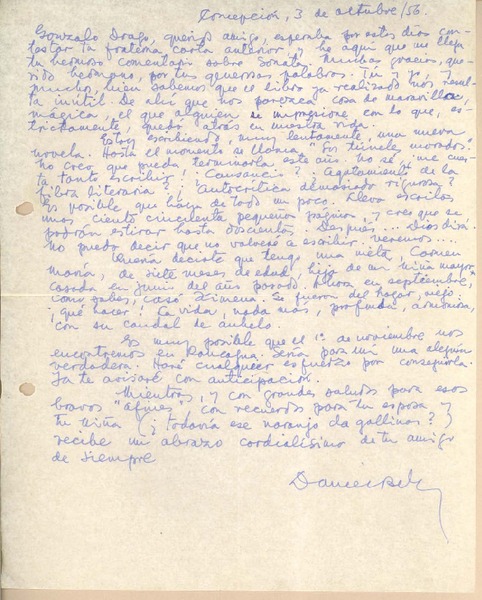 Concepción, 3 de octubre/56.
Gonzalo Drago, querido amigo, esperaba por estos días con-
testar tu fraterna carta anterior, y he aquí que me llega
tu hermoso comentario sobre Sonata. Muchas gracias, que-
rido hermano, por tus generosas palabras. Tú y yo, y
mucho, bien sabemos que el libro ya realizado nos resul-
ta inútil. De ahí que nos parezca cosa de maravilla,
mágica, el que alguien se impresione con lo que, es-
trictamente, quedó atrás en nuestra vida.
Estoy escribiendo, muy lentamente, una nueva
novela. Hasta el momento se llama "En túneles morados".
No creo que pueda terminarla este año. No sé, me cues-
ta tanto escribir! Cansancio? Agotamiento de la
fibra literaria? Autocrítica demasiado rigurosa?
Es posible que haya de todo un poco. Llevo escritas
unas ciento cincuenta pequeñas páginas, y creo que se
podrán estirar hasta doscientas. Después... Dios dirá.
No puedo decir que no volveré a escribir. Veremos...
Quería decirte que tengo una nieta, Carmen
María, de siete meses de edad, hija de mi niña mayor,
casada en junio del año pasado. Ahora en septiembre,
como sabes, casó Ximena. Se fueron del hogar, viejo.
¡qué hacer! La vida, nada más, profunda, armoniosa,
con su caudal de anhelo.
Es muy posible que el 1º de noviembre nos
encontremos en Rancagua. Sería para mí una alegría
verdadera. Haré cualquier esfuerzo por conseguirla.
Ya te avisaré con anticipación.
Mientras, y con grandes saludos para esos
bravos "Afines", con recuerdos para tu esposa y
tu niña (¿todavía ese naranjo da gallinas?)
recibe un abrazo cordialísimo de tu amigo
de siempre
Daniel Bel